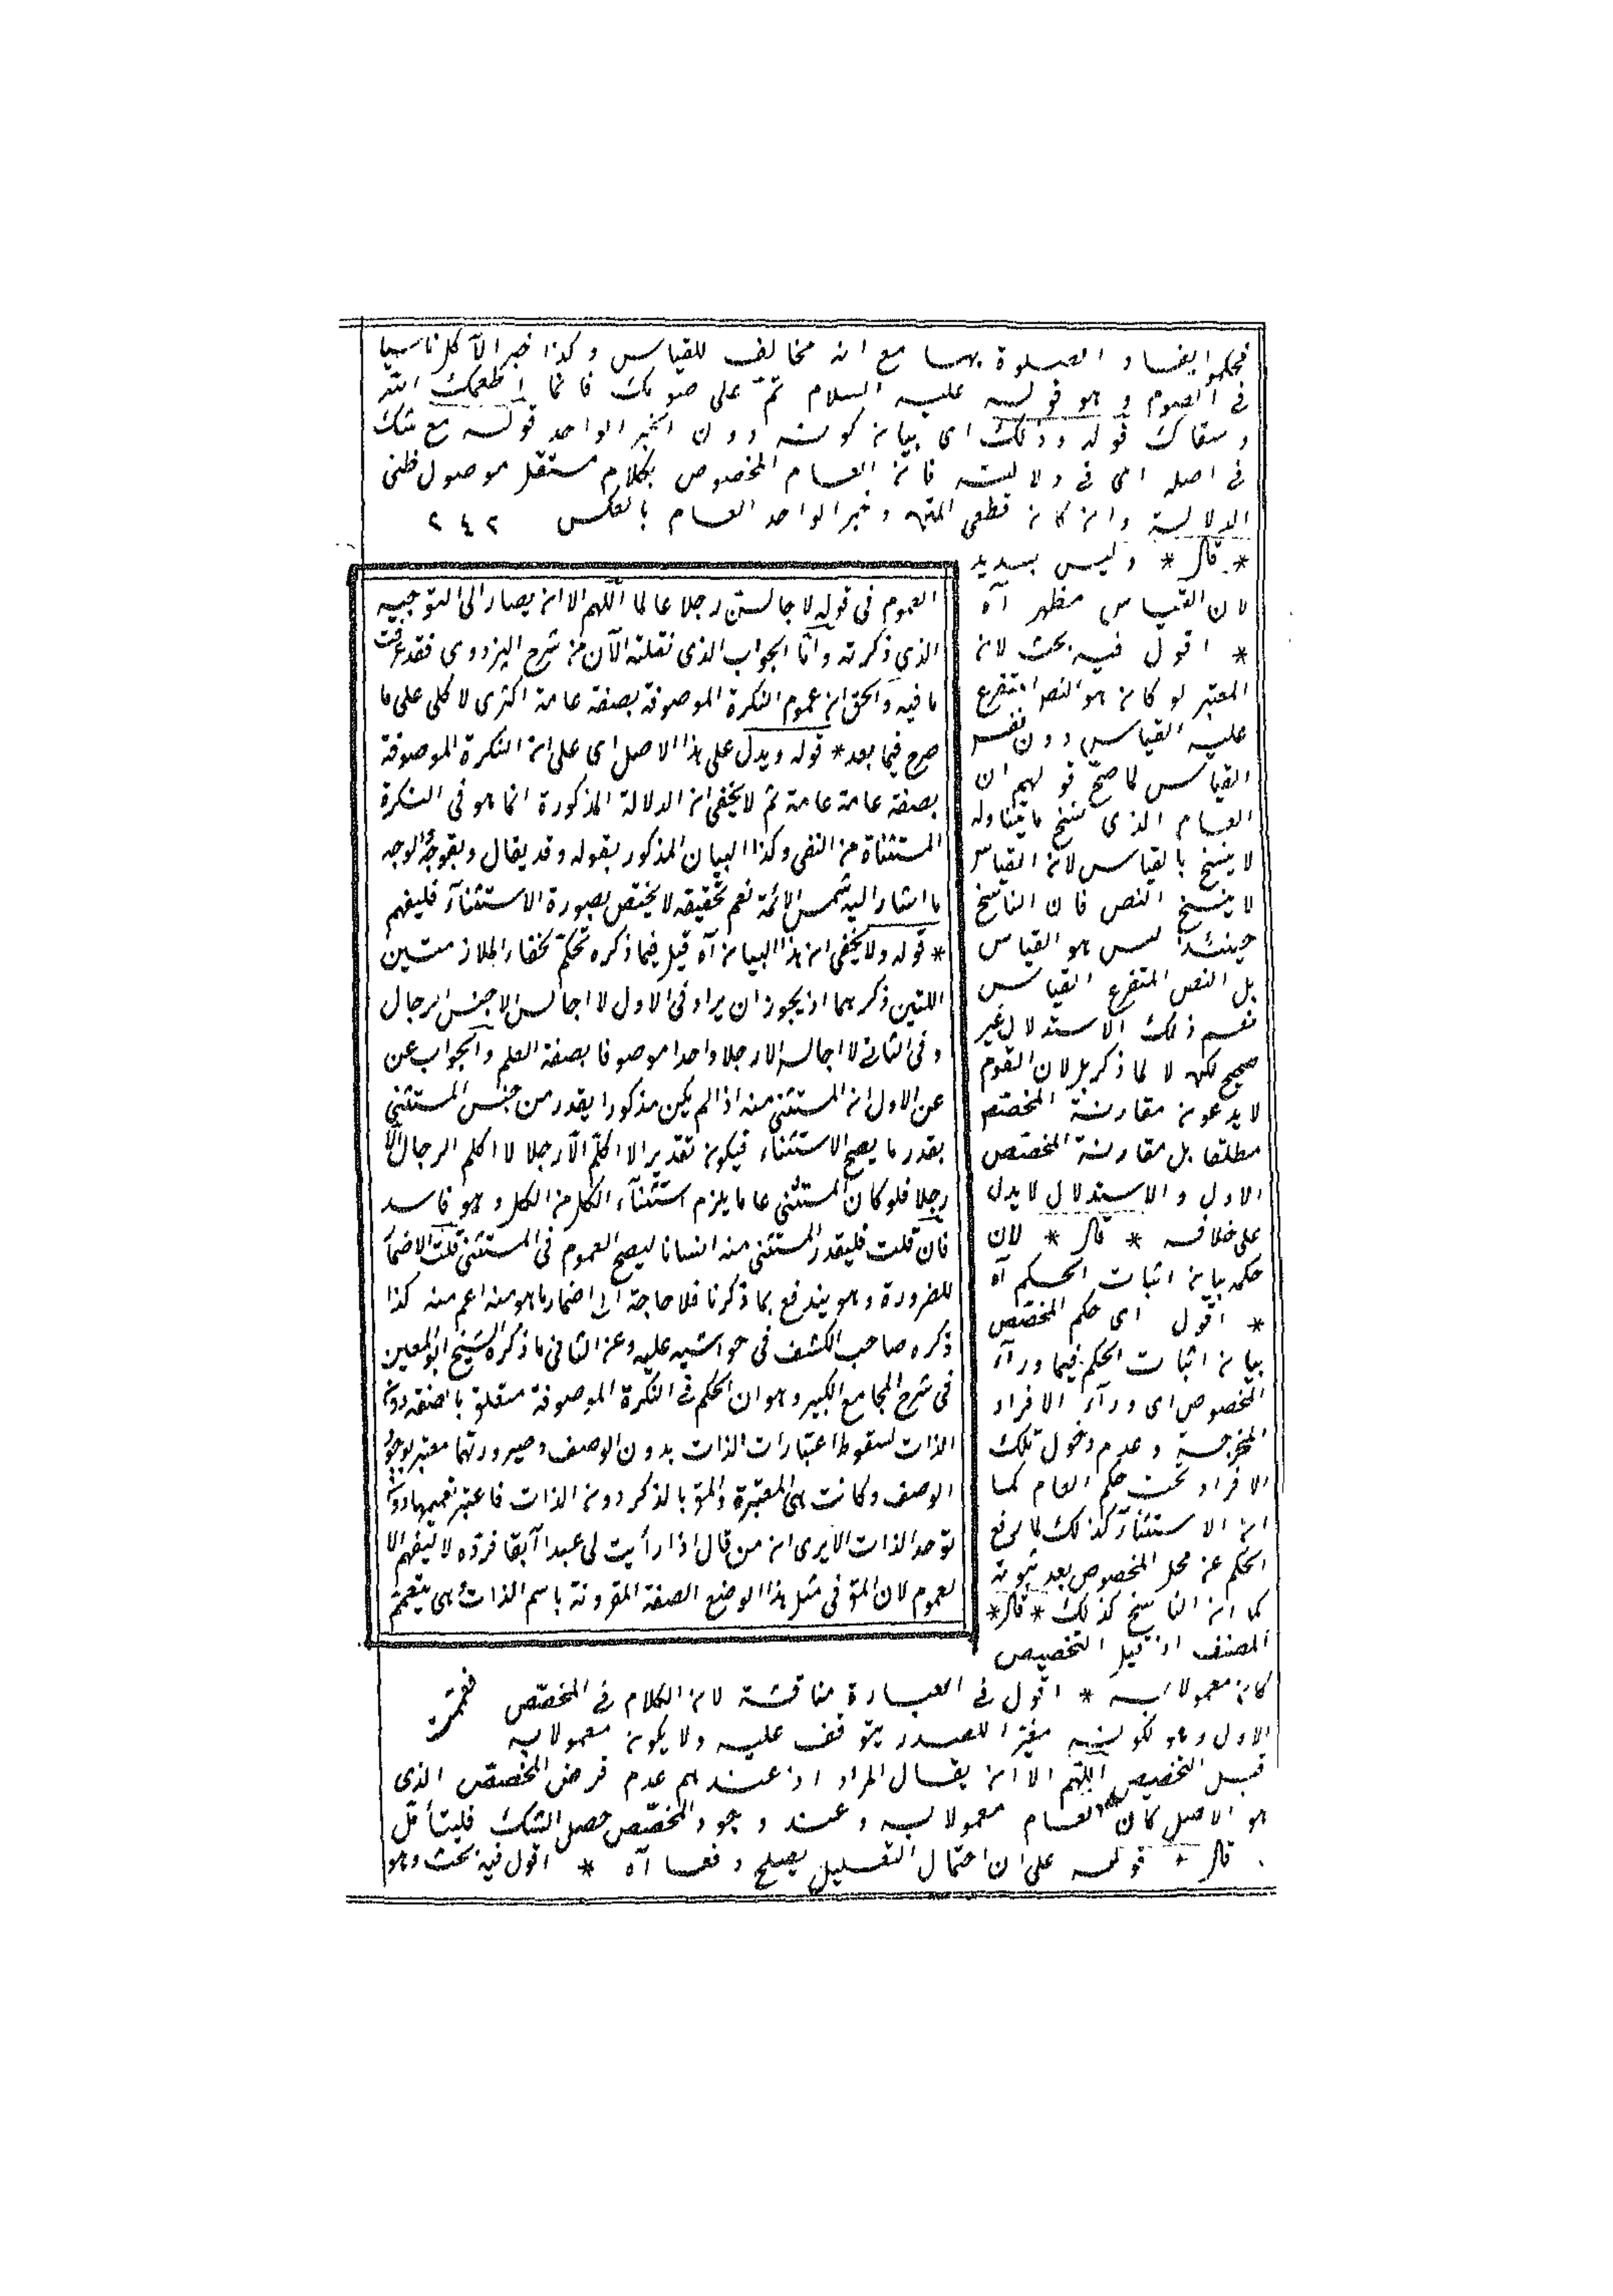 فحكموا بفساد الصلوة بها مع انه مخالف للقياس وكذا خبر الآكل ناسيا
فى الصوم وهو قوله عليه السلام تم على صومك فانما اطعمك الله
وسقاك قوله وذلك اى بيان كونه دون الخبر الواحد قوله مع شك
فى اصله اى فى دلالته فان العام المخصوص بكلام مستقل موصول ظنى
الدلالة وان كان قطعى المتن وخبر الواحد العام بالعكس ٢٤٢
* قال * وليس بسديد
لان القياس مظهر آه
* اقول فيه بحث لان
المعتبر لو كان هو النص المتفرع
عليه القياس دون نفس
القياس لما صح قولهم ان
العام الذى نسخ ما يتناوله
لا ينسخ بالقياس لان القياس
لا ينسخ النص فان الناسخ
حينئذ ليس هو القياس
بل النص المتفرع القياس
نعم ذلك الاستدلال غير
صحيح لكنه لا لما ذكر بل لان القوم
لا يدعون مقارنة المخصص
مطلقا بل مقارنة المخصص
الاول والاستدلال لا يدل
على خلافه * قال * لان
حكمه بيان اثبات الحكم آه
* اقول اى حكم المخصص
بيان اثبات الحكم فيما ورآء
المخصوص اى ورآء الافراد
المخرجة وعدم دخول تلك
الافراد تحت حكم العام كما
ان الاستثنآء كذلك لا لرفع
الحكم عن محل المخصوص بعد ثبوته
كما ان الناسخ كذلك * قال *
المصنف اذ قبل التخصيص
كان معمولا به * اقول فى العبارة مناقشة لان الكلام فى المخصص
الاول وهو لكونه مغيرا للصدر يتوقف عليه ولا يكون معمولا به
قبل التخصيص اللهم الا ان يقال المراد اذ عندهم عدم فرض المخصص الذى
هو الاصل كان العام معمولا به وعند وجود المخصص حصل الشك فليتأمل
قال * قوله على ان احتمال التعليل يصلح دفعا آه * اقول فيه بحث وهو
العموم فى قوله لا جالسن رجلا عالما اللهم الا ان يصار الى التوجيه
الذى ذكرته واما الجواب الذى نقلته الآن من شرح البزدوى فقد عرفت
ما فيه والحق ان عموم النكرة الموصوفة بصفة عامة اكثرى لا كلى على ما
صرح فيما بعد * قوله ويدل على هذا الاصل اى على ان النكرة الموصوفة
بصفة عامة عامة ثم لا يخفى ان الدلالة المذكورة انما هو فى النكرة
المستثناة من النفى وكذا البيان المذكور بقوله وقد يقال وبقوله والوجه
ما اشار اليه شمس الائمة نعم تحقيقه لا يختص بصورة الاستثنآء فليفهم
* قوله ولا يخفى ان هذا البيان آه قيل فيما ذكره تحكم لخفاء الملازمتين
اللتين ذكرهما اذ يجوز ان يراد فى الاول لا اجالس الا جنس الرجال
وفى الثانى لا اجالس الا رجلا واحدا موصوفا بصفة العلم والجواب عن
عن الاول ان المستثنى منه اذا لم يكن مذكورا يقدر من جنس المستثنى
بقدر ما يصح الاستثناء فيكون تقدير الا اكلم الا رجلا لا اكلم الرجال الا
رجلا فلو كان المستثنى عاما يلزم استثنآء الكل من الكل وهو فاسد
فان قلت فليقدر المستثنى منه انسانا ليصح العموم فى المستثنى قلت الاضمار
للضرورة وهو يندفع بما ذكرنا فلا حاجة الى اضمار ما هو منه اعم منه كذا
ذكره صاحب الكشف فى حواشيه عليه وعن الثانى ما ذكره الشيخ ابو المعين
فى شرح الجامع الكبير وهو ان الحكم فى النكرة الموصوفة متعلق بالصفة دون
الذات لسقوط اعتبارات الذات بدون الوصف وصيرورتها معتبر بوجود
الوصف وكانت هى المعتبرة والمق بالذكر دون الذات فاعتبر تعميمها دون
توحد الذات الا يرى ان من قال اذا رأيت لى عبدا آبقا فرده لا يفهم الا
لعموم لان المق فى مثل هذا الوضع الصفة المقرونة باسم الذات هى يتعمم
فعمت